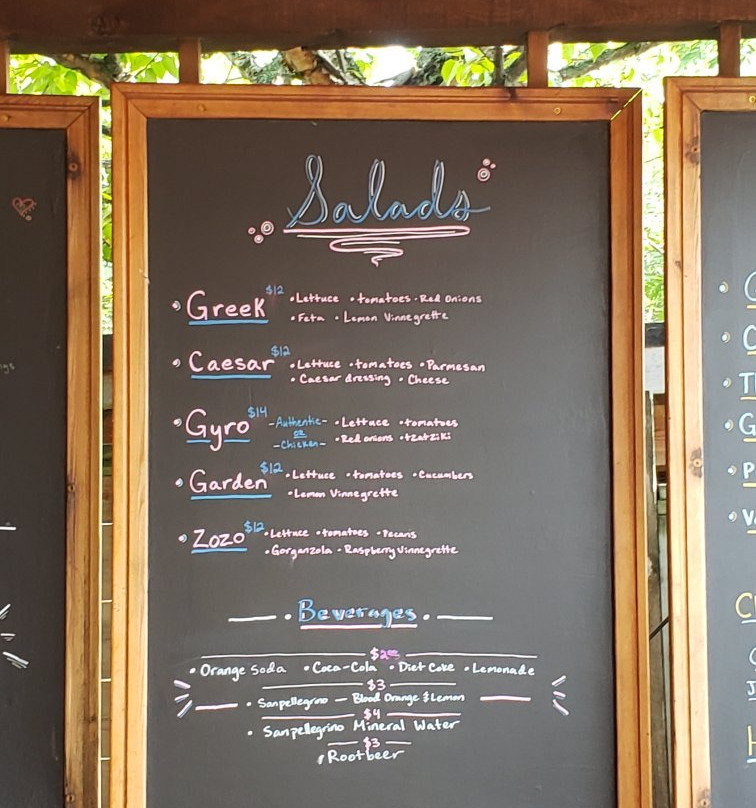 Salads
• Greek $12 • Lettuce • tomatoes • Red Onions
• Feta • Lemon Vinnegrette
• Caesar $12 • Lettuce • tomatoes • Parmesan
• Caesar dressing • Cheese
• Gyro $14 -Authentic- or -Chicken- • Lettuce • tomatoes
• Red onions • tzatziki
• Garden $12 • Lettuce • tomatoes • Cucumbers
• Lemon Vinnegrette
• Zozo $12 • Lettuce • tomatoes • Pecans
• Gorganzola • Raspberry Vinnegrette
• Beverages •
$2
• Orange Soda • Coca-Cola • Diet Coke • Lemonade
$3
• Sanpellegrino — Blood Orange & Lemon
$4
• Sanpellegrino Mineral Water
$3
Rootbeer